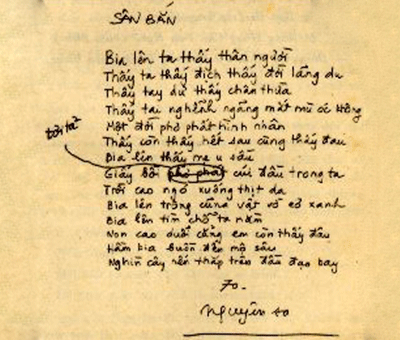 SÂN BẮN
Bia lên ta thấy thân người
Thấy ta thấy địch thấy đời lãng du
Thấy tay dư thấy chân thừa
Thấy tai nghễnh ngãng mắt mũ óc không
Một đời phờ phạt hình nhân
Thấy còn thấy hết sau cùng thấy đau
Bia lên thấy mẹ u sầu
tơi tả
Giấy bồi phờ phạt cúi đầu trong ta
Trời cao ngó xuống thịt da
Bia lên trồng cũng vật vờ cỏ xanh
Bia lên tìm chỗ ta nằm
Non cao dưới cẳng em còn thấy đâu
Hầm bia buồn đến mộ sâu
Nghìn cây nến thắp trên đầu đạn bay
70-
Nguyên sa